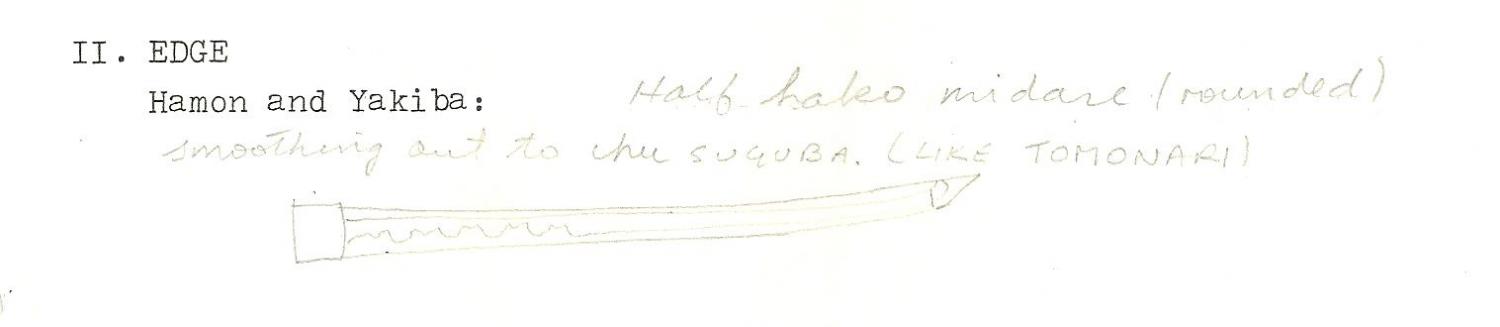 II. EDGE
Hamon and Yakiba: Half hako midare (rounded)
smoothing out to chu SUGUBA. (LIKE TOMONARI)